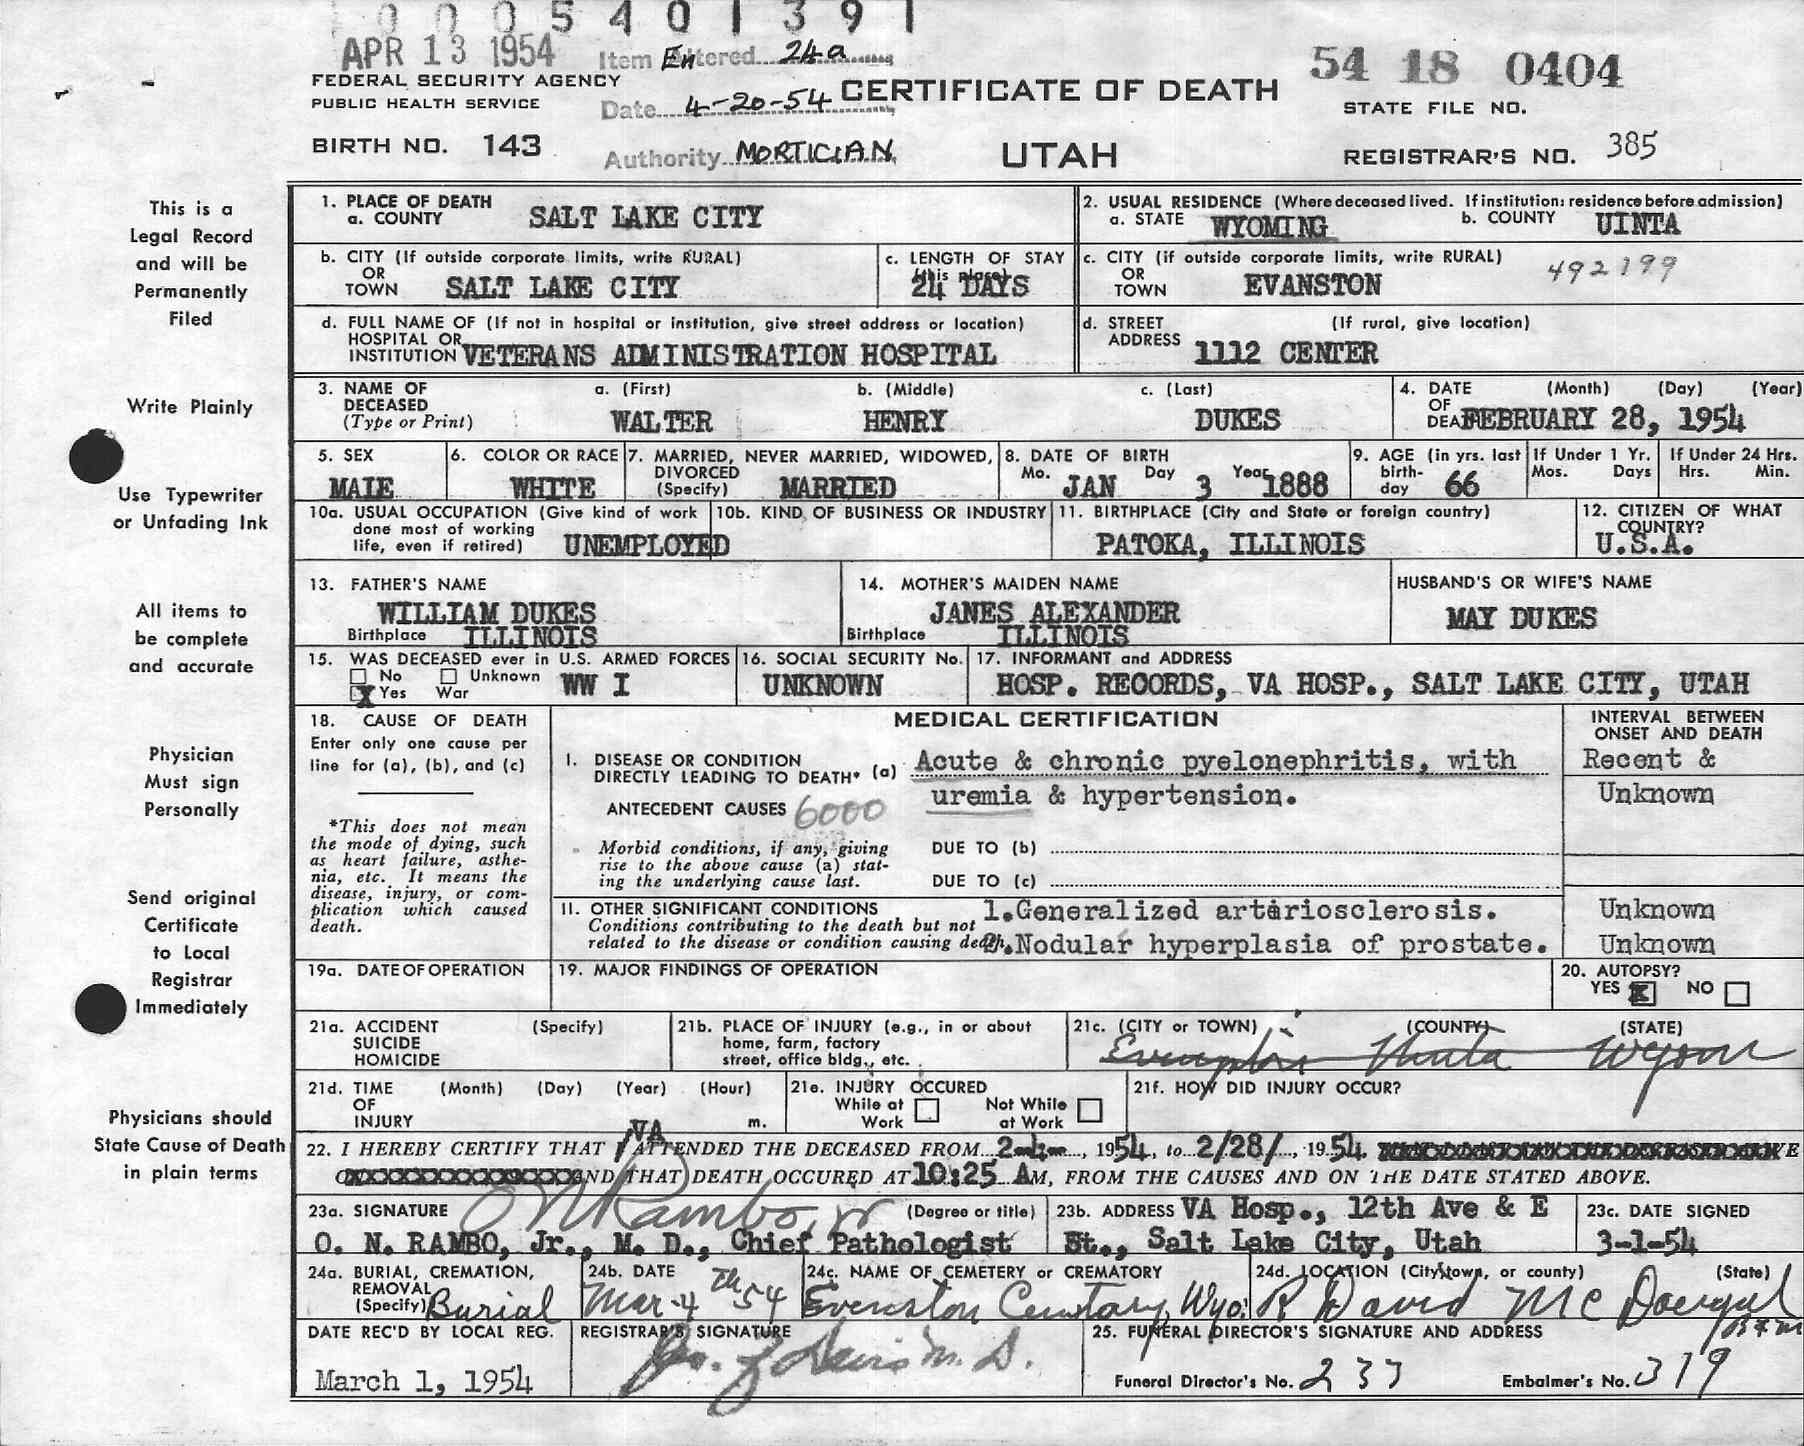 0 0 0 5 4 0 1 3 9 1
APR 13 1954
Item Entered 24a
54 18 0404
FEDERAL SECURITY AGENCY
PUBLIC HEALTH SERVICE
Date 4-20-54
CERTIFICATE OF DEATH
STATE FILE NO.
BIRTH NO. 143
Authority MORTICIAN
UTAH
REGISTRAR'S NO. 385
This is a
Legal Record
and will be
Permanently
Filed
Write Plainly
Use Typewriter
or Unfading Ink
All items to
be complete
and accurate
Physician
Must sign
Personally
Send original
Certificate
to Local
Registrar
Immediately
Physicians should
State Cause of Death
in plain terms
1. PLACE OF DEATH
a. COUNTY SALT LAKE CITY
2. USUAL RESIDENCE (Where deceased lived. If institution: residence before admission)
a. STATE WYOMING b. COUNTY UINTA
b. CITY (If outside corporate limits, write RURAL)
OR
TOWN SALT LAKE CITY
c. LENGTH OF STAY
(this place)
24 DAYS
c. CITY (if outside corporate limits, write RURAL)
OR
TOWN EVANSTON
492199
d. FULL NAME OF (If not in hospital or institution, give street address or location)
HOSPITAL OR
INSTITUTION VETERANS ADMINISTRATION HOSPITAL
d. STREET (If rural, give location)
ADDRESS 1112 CENTER
3. NAME OF a. (First) b. (Middle) c. (Last)
DECEASED
(Type or Print) WALTER HENRY DUKES
4. DATE (Month) (Day) (Year)
OF
DEATH FEBRUARY 28, 1954
5. SEX
MALE
6. COLOR OR RACE
WHITE
7. MARRIED, NEVER MARRIED, WIDOWED,
DIVORCED
(Specify) MARRIED
8. DATE OF BIRTH
Mo. JAN Day 3 Year 1888
9. AGE (in yrs. last
birth-
day 66
If Under 1 Yr.
Mos. Days
If Under 24 Hrs.
Hrs. Min.
10a. USUAL OCCUPATION (Give kind of work
done most of working
life, even if retired) UNEMPLOYED
10b. KIND OF BUSINESS OR INDUSTRY
11. BIRTHPLACE (City and State or foreign country)
PATOKA, ILLINOIS
12. CITIZEN OF WHAT
COUNTRY?
U.S.A.
13. FATHER'S NAME
WILLIAM DUKES
Birthplace ILLINOIS
14. MOTHER'S MAIDEN NAME
JANES ALEXANDER
Birthplace ILLINOIS
HUSBAND'S OR WIFE'S NAME
MAY DUKES
15. WAS DECEASED ever in U.S. ARMED FORCES
No Unknown
X Yes War WW I
16. SOCIAL SECURITY No.
UNKNOWN
17. INFORMANT and ADDRESS
HOSP. RECORDS, VA HOSP., SALT LAKE CITY, UTAH
18. CAUSE OF DEATH
Enter only one cause per
line for (a), (b), and (c)
*This does not mean
the mode of dying, such
as heart failure, asthe-
nia, etc. It means the
disease, injury, or com-
plication which caused
death.
MEDICAL CERTIFICATION
INTERVAL BETWEEN
ONSET AND DEATH
I. DISEASE OR CONDITION
DIRECTLY LEADING TO DEATH* (a) Acute & chronic pyelonephritis, with
Recent &
ANTECEDENT CAUSES 6000 uremia & hypertension.
Unknown
Morbid conditions, if any, giving
rise to the above cause (a) stat-
ing the underlying cause last.
DUE TO (b)
DUE TO (c)
II. OTHER SIGNIFICANT CONDITIONS
Conditions contributing to the death but not
related to the disease or condition causing death.
1. Generalized artériosclerosis. Unknown
2. Nodular hyperplasia of prostate. Unknown
19a. DATE OF OPERATION
19. MAJOR FINDINGS OF OPERATION
20. AUTOPSY?
YES X NO
21a. ACCIDENT (Specify)
SUICIDE
HOMICIDE
21b. PLACE OF INJURY (e.g., in or about
home, farm, factory
street, office bldg., etc.
21c. (CITY or TOWN) (COUNTY) (STATE)
21d. TIME (Month) (Day) (Year) (Hour)
OF
INJURY m.
21e. INJURY OCCURED
While at Work Not While at Work
21f. HOW DID INJURY OCCUR?
22. I HEREBY CERTIFY THAT VA ATTENDED THE DECEASED FROM 1954, to 2/28/, 1954,
AND THAT DEATH OCCURED AT 10:25 AM, FROM THE CAUSES AND ON THE DATE STATED ABOVE.
23a. SIGNATURE O N Rambo, Jr (Degree or title)
O. N. RAMBO, Jr., M. D., Chief Pathologist
23b. ADDRESS VA Hosp., 12th Ave & E
St., Salt Lake City, Utah
23c. DATE SIGNED
3-1-54
24a. BURIAL, CREMATION,
REMOVAL
(Specify) Burial
24b. DATE
Mar 4th 54
24c. NAME OF CEMETERY or CREMATORY
Evenston Cemtary, Wyo.
24d. LOCATION (City, town, or county) (State)
R David McDougal
DATE REC'D BY LOCAL REG.
March 1, 1954
REGISTRAR'S SIGNATURE
M. D.
25. FUNERAL DIRECTOR'S SIGNATURE AND ADDRESS
Funeral Director's No. 237 Embalmer's No. 319